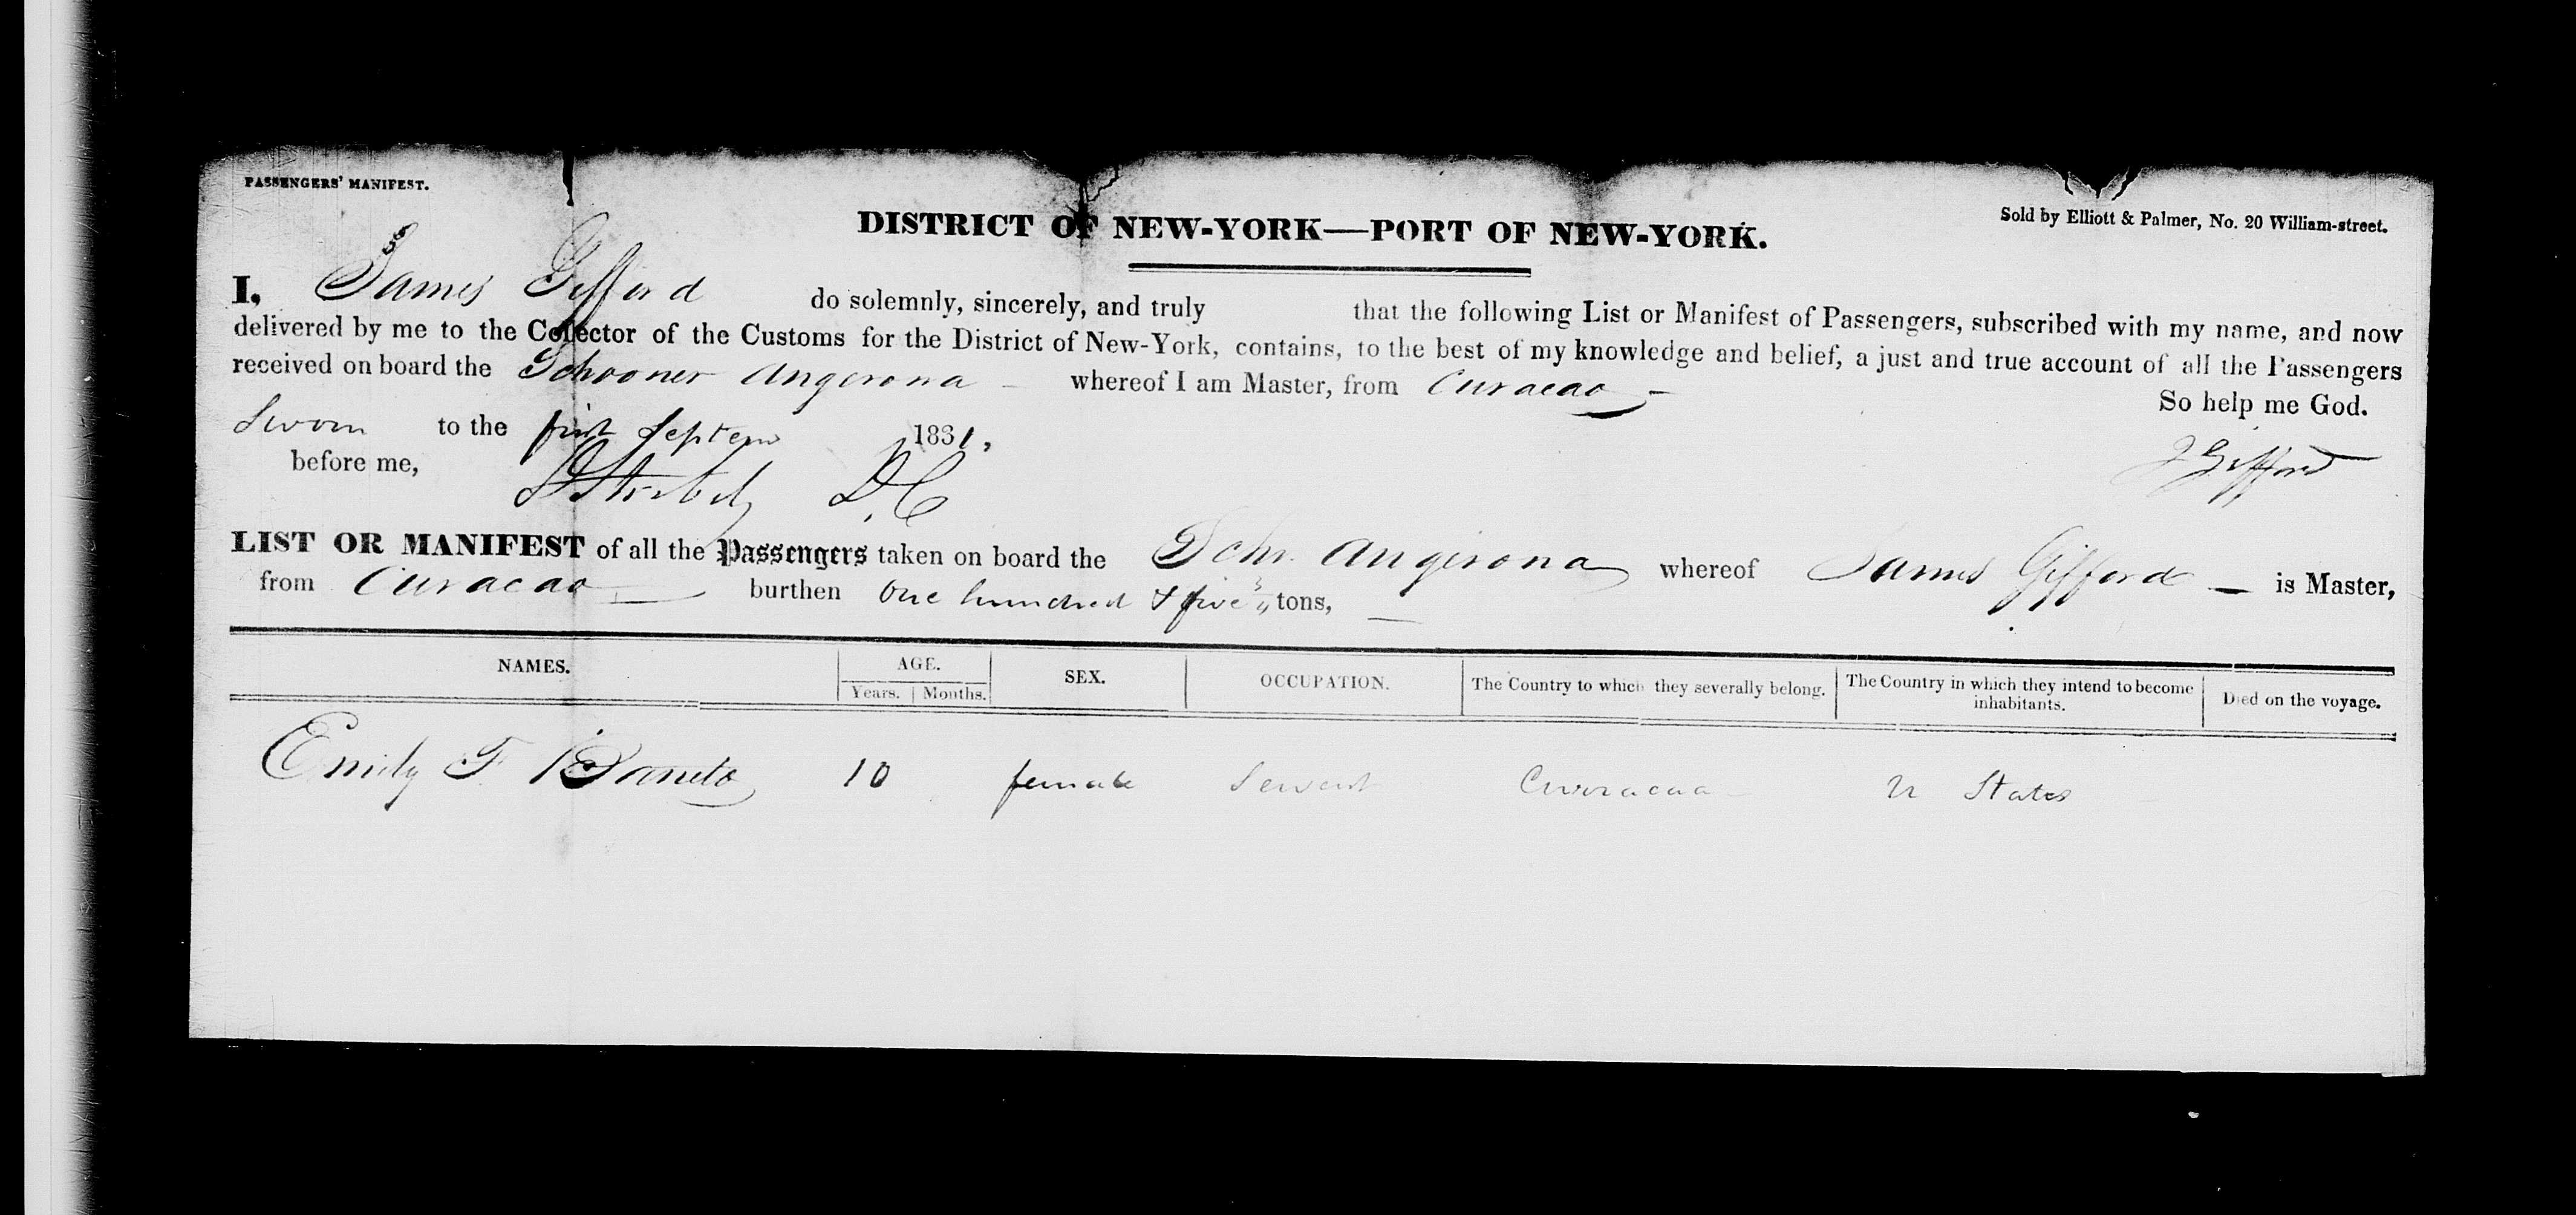 PASSENGERS' MANIFEST.
Sold by Elliott & Palmer, No. 20 William-street.
DISTRICT OF NEW-YORK—PORT OF NEW-YORK.
I, James Gifford do solemnly, sincerely, and truly that the following List or Manifest of Passengers, subscribed with my name, and now
delivered by me to the Collector of the Customs for the District of New-York, contains, to the best of my knowledge and belief, a just and true account of all the Passengers
received on board the Schooner Angerona whereof I am Master, from Curacao
So help me God.
Sworn to the first Septem 1831,
before me, D.C
J Gifford
LIST OR MANIFEST of all the Passengers taken on board the Schr. Angirona whereof James Gifford is Master,
from Curacao burthen One hundred & five tons,
NAMES. AGE. SEX. OCCUPATION. The Country to which they severally belong. The Country in which they intend to become inhabitants. Died on the voyage.
Years. Months.
Emily F 10 female Servant Curracaa U States